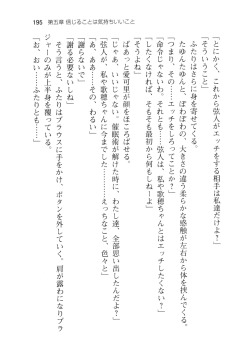 195　第五章 信じることは気持ちいいこと
「とにかく、これから弦人がエッチをする相手は私達だけよ？」
「そういうこと」
ふたりはさらに身を寄せてくる。
たゆんたゆんと、大きさの違う柔らかな感触が左右から体を挟んでくる。
「つまり、その ってことか？」
「命令じゃないわ、それとも……弦人は、私や歌穂ちゃんとはエッチしたくない？」
「したくなければ、そもそも最初から何もしねーよ」
「そうよね」
ぱあっと愛可里が顔をほころばせる。
「じゃあ、いいじゃない。催眠術が解けた時に、わたし達、全部思い出したんだよ？」
「弦人が、私や歌穂ちゃんに今までした………えっちなこと、色々と」
「あ、ああ……その、わるい」
「謝らないで」
「謝る必要ないしね」
そう言うと、ふたりはブラウスに手をかけ、ボタンを外していく。肩が露わになりブラ
ジャーのみが上半身を覆っている。
「お、おい……ふたりとも……」